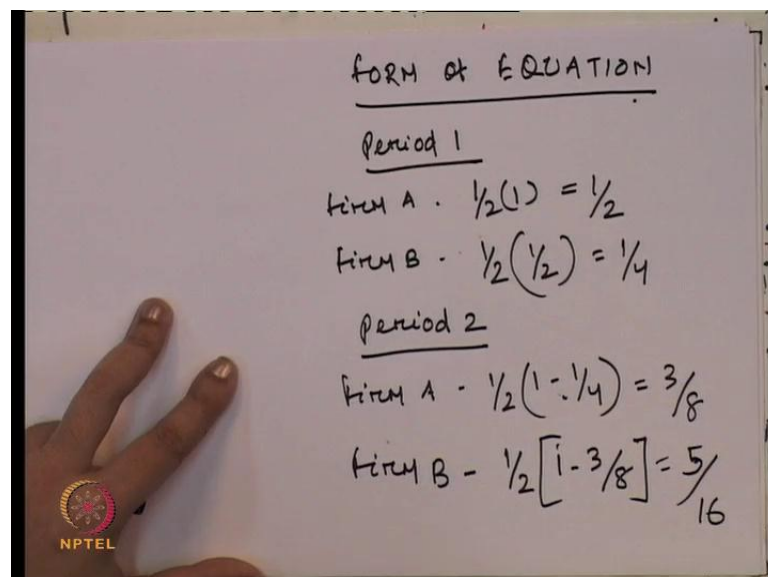 FORM of EQUATION
Period 1
Firm A . 1/2 (1) = 1/2
Firm B - 1/2 (1/2) = 1/4
Period 2
Firm A - 1/2 (1 - 1/4) = 3/8
Firm B - 1/2 [1 - 3/8] = 5/16
NPTEL